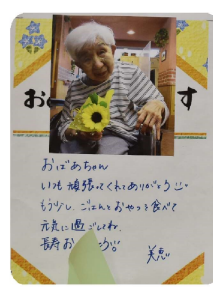 お
す
おばあちゃん
いつも頑張ってくれてありがとう
もう少し、ごはんとおやつを食べて
元気に過ごしてね。
長寿お
う。
美恵